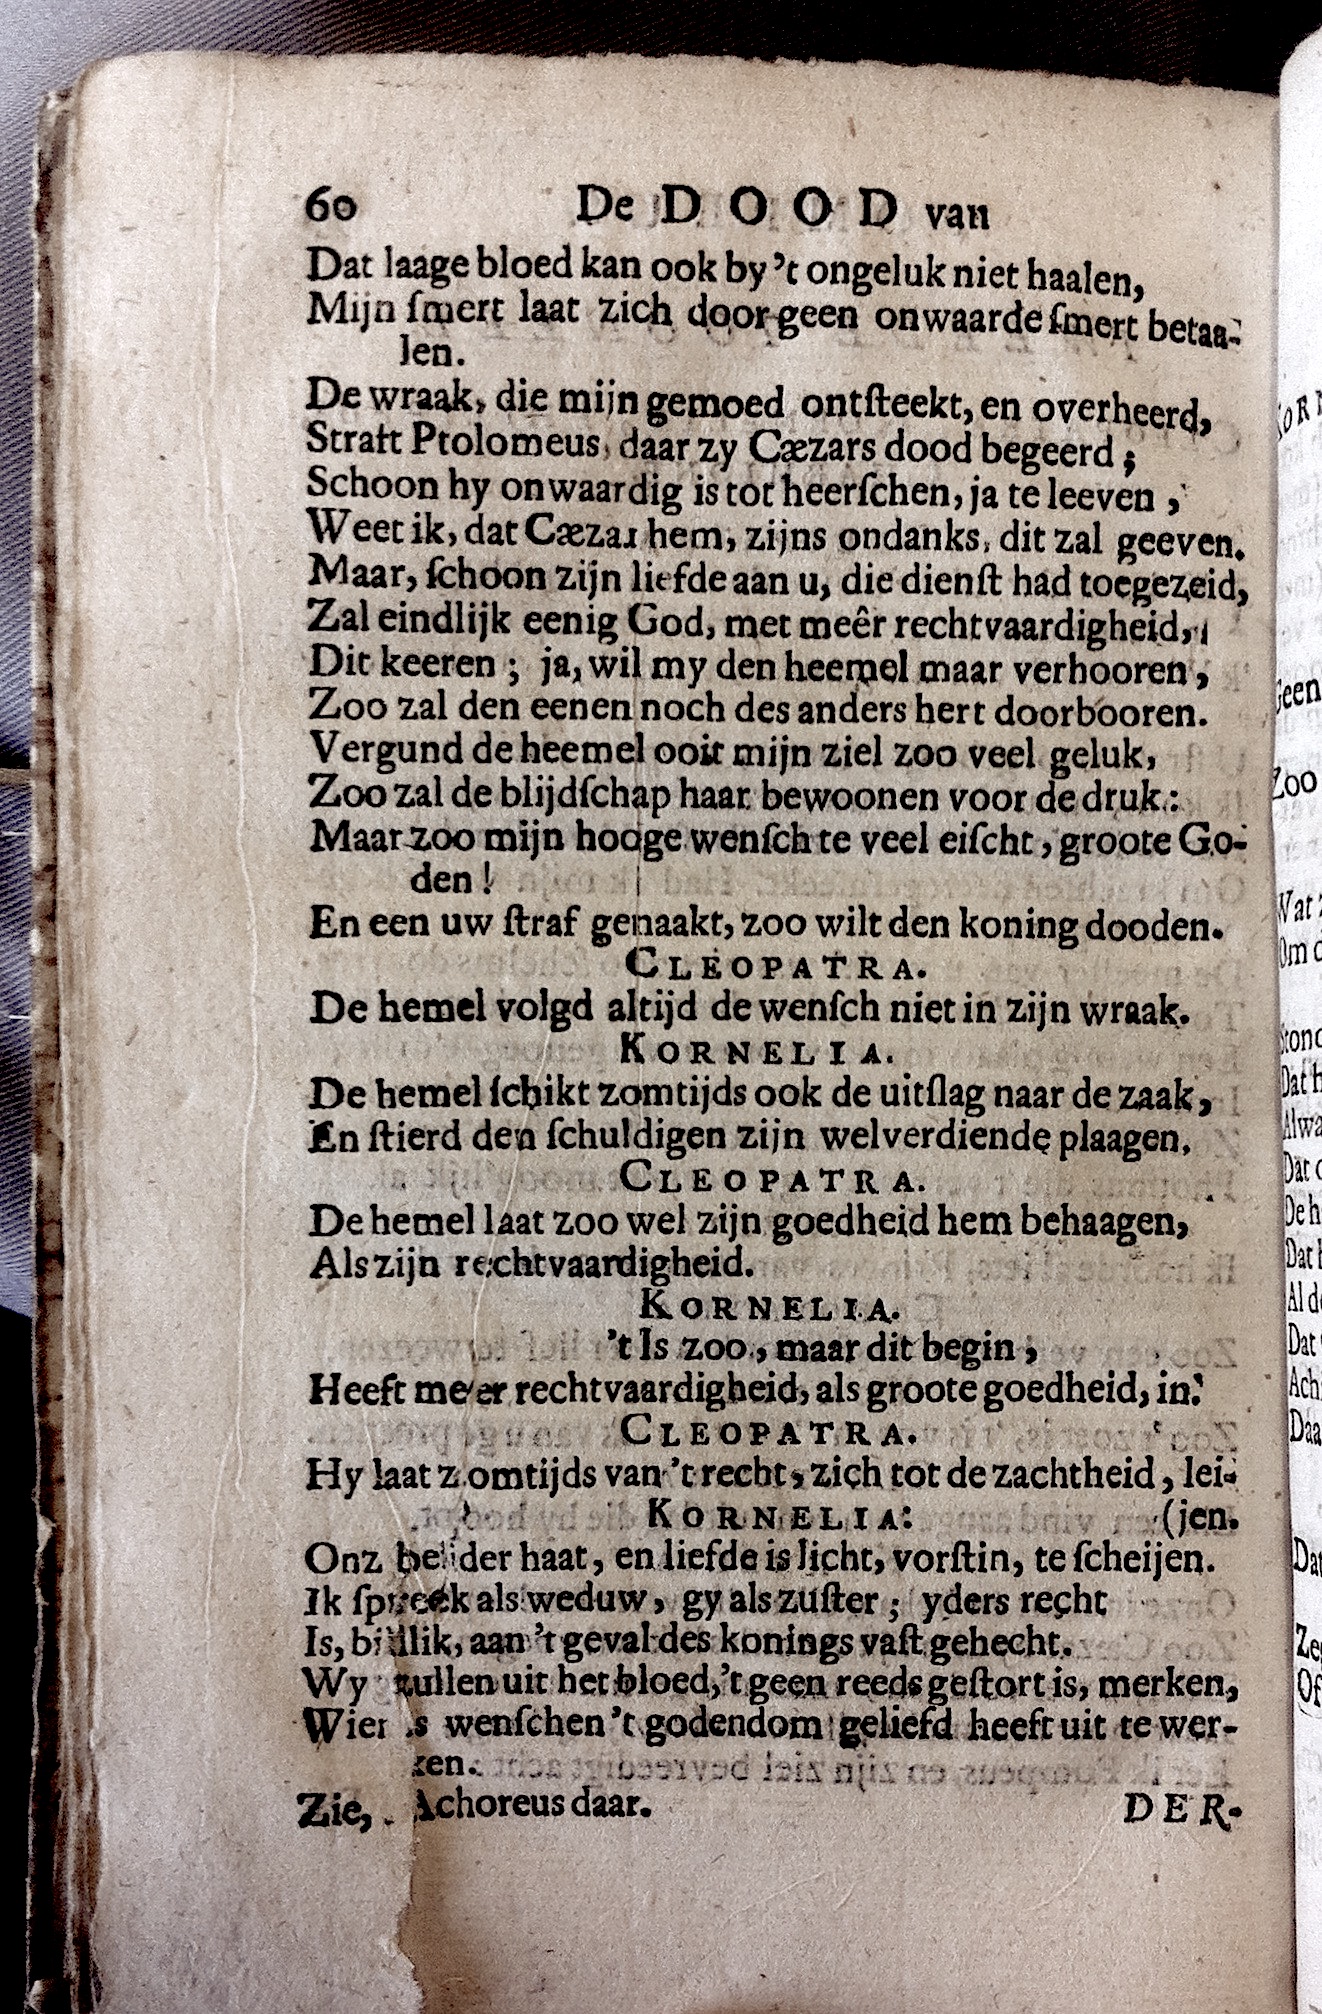 60 De DOOD van
Dat laage bloed kan ook by 't ongeluk niet haalen,
Mijn ſmert laat zich door geen onwaarde ſmert betaa-
len.
De wraak, die mijn gemoed ontſteekt, en overheerd,
Straft Ptolomeus, daar zy Cæzars dood begeerd;
Schoon hy onwaardig is tot heerſchen, ja te leeven,
Weet ik, dat Cæzar hem, zijns ondanks, dit zal geeven.
Maar, ſchoon zijn liefde aan u, die dienſt had toegezeid,
Zal eindlijk eenig God, met meêr rechtvaardigheid,
Dit keeren; ja, wil my den heemel maar verhooren,
Zoo zal den eenen noch des anders hert doorbooren.
Vergund de heemel ooit mijn ziel zoo veel geluk,
Zoo zal de blijdſchap haar bewoonen voor de druk:
Maar zoo mijn hooge wenſch te veel eiſcht, groote Go-
den!
En een uw ſtraf genaakt, zoo wilt den koning dooden.
CLEOPATRA.
De hemel volgd altijd de wenſch niet in zijn wraak.
KORNELIA.
De hemel ſchikt zomtijds ook de uitſlag naar de zaak,
En ſtierd den ſchuldigen zijn welverdiende plaagen.
CLEOPATRA.
De hemel laat zoo wel zijn goedheid hem behaagen,
Als zijn rechtvaardigheid.
KORNELIA.
't Is zoo, maar dit begin,
Heeft meer rechtvaardigheid, als groote goedheid, in.
CLEOPATRA.
Hy laat zomtijds van 't recht, zich tot de zachtheid, lei-
KORNELIA. (jen.
Onz beider haat, en liefde is licht, vorſtin, te ſcheijen.
Ik ſpreek als weduw, gy als zuſter; yders recht
Is, billik, aan 't geval des konings vaſt gehecht.
Wy zullen uit het bloed, 't geen reeds geſtort is, merken,
Wiens wenſchen 't godendom geliefd heeft uit te wer-
ken.
Zie, Achoreus daar. DER-
Geen
Zoo
Wat
Om
Dat
Dat
De
Dat
Al
Dat
Of